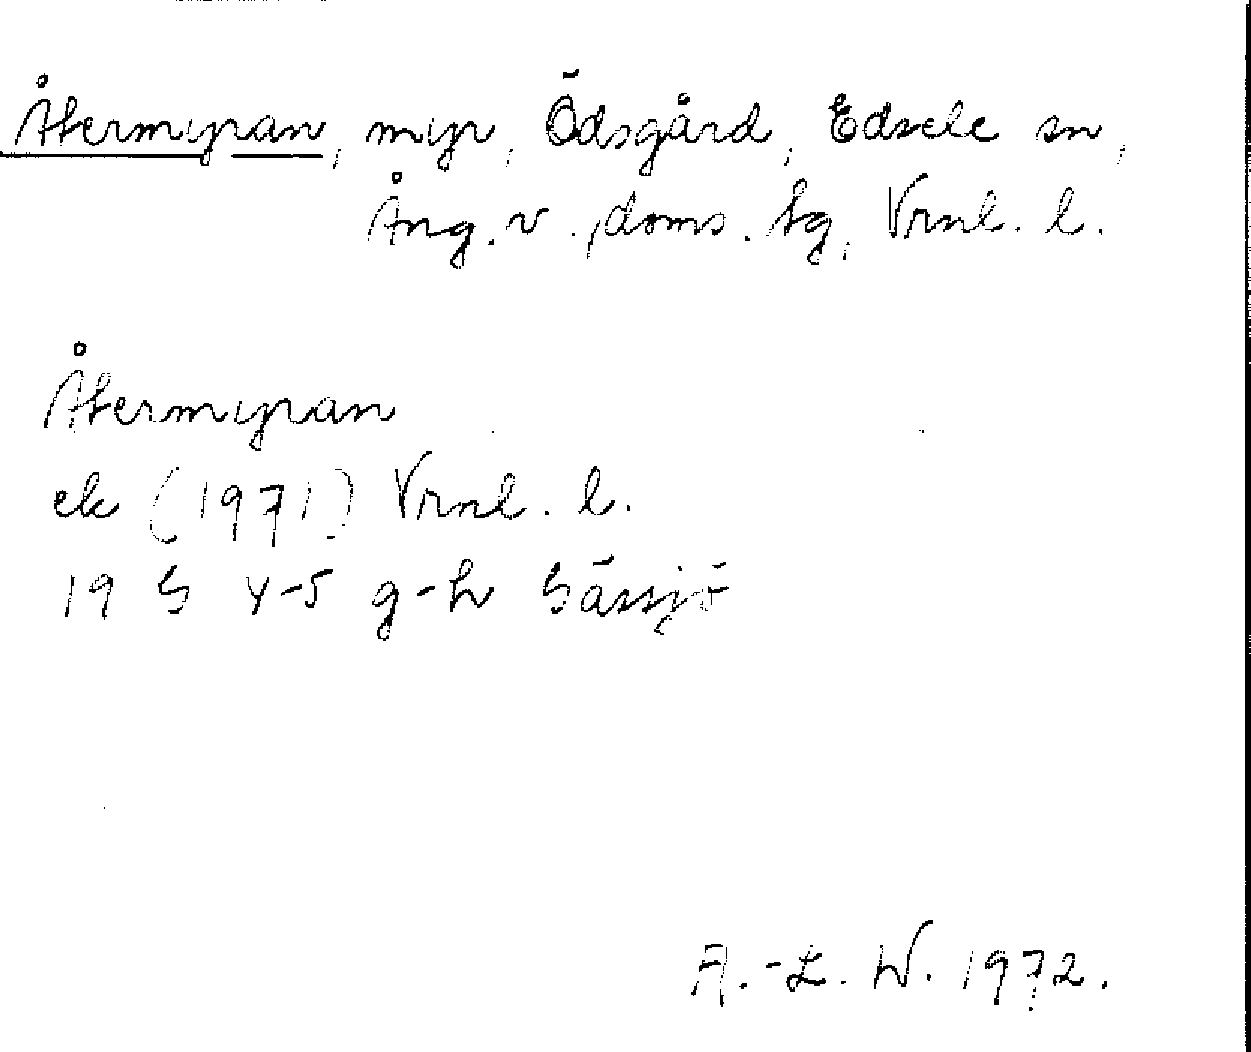 Åkermyran, myr, Ödsgård, Edsele sn,
Ång. v., doms. tg, Vrnl. l.
Åkermyran
ek (1971) Vrnl. l.
19 G 4-5 g-h Gässjö
A.-L. W. 1972.